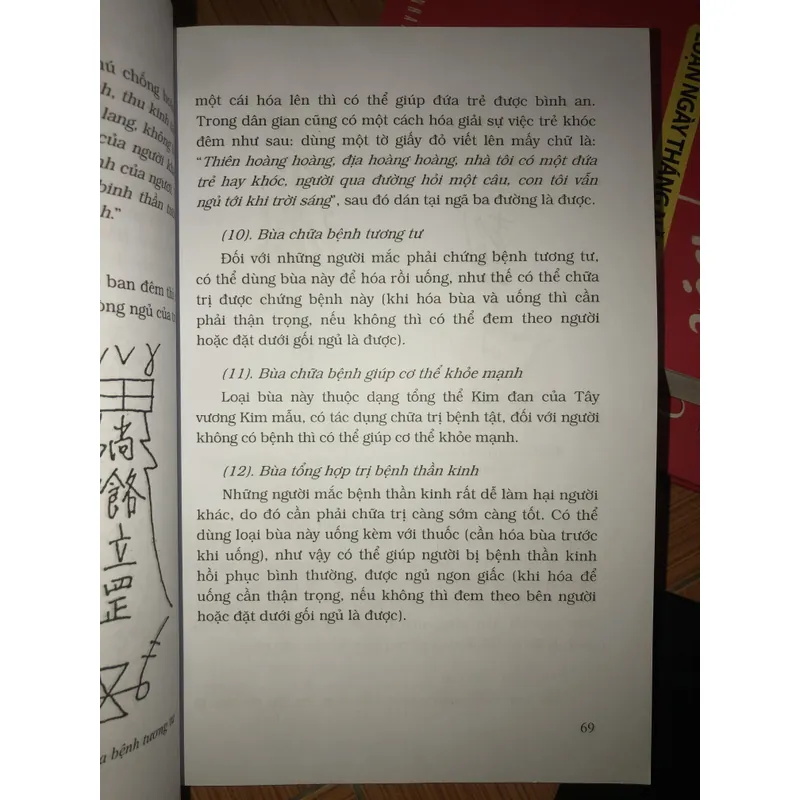 ú chống
h, thu kinh
lang, không
của người
nh của người
binh thần
h."
ban đêm thì
òng ngủ của
尚
餎
立
罡
a bệnh tương tư
một cái hóa lên thì có thể giúp đứa trẻ được bình an.
Trong dân gian cũng có một cách hóa giải sự việc trẻ khóc
đêm như sau: dùng một tờ giấy đỏ viết lên mấy chữ là:
"Thiên hoàng hoàng, địa hoàng hoàng, nhà tôi có một đứa
trẻ hay khóc, người qua đường hỏi một câu, con tôi vẫn
ngủ tới khi trời sáng", sau đó dán tại ngã ba đường là được.
(10). Bùa chữa bệnh tương tư
Đối với những người mắc phải chứng bệnh tương tư,
có thể dùng bùa này để hóa rồi uống, như thế có thể chữa
trị được chứng bệnh này (khi hóa bùa và uống thì cần
phải thận trọng, nếu không thì có thể đem theo người
hoặc đặt dưới gối ngủ là được).
(11). Bùa chữa bệnh giúp cơ thể khỏe mạnh
Loại bùa này thuộc dạng tổng thể Kim đan của Tây
vương Kim mẫu, có tác dụng chữa trị bệnh tật, đối với người
không có bệnh thì có thể giúp cơ thể khỏe mạnh.
(12). Bùa tổng hợp trị bệnh thần kinh
Những người mắc bệnh thần kinh rất dễ làm hại người
khác, do đó cần phải chữa trị càng sớm càng tốt. Có thể
dùng loại bùa này uống kèm với thuốc (cần hóa bùa trước
khi uống), như vậy có thể giúp người bị bệnh thần kinh
hồi phục bình thường, được ngủ ngon giấc (khi hóa để
uống cần thận trọng, nếu không thì đem theo bên người
hoặc đặt dưới gối ngủ là được).
69
NGÀY THÁNG